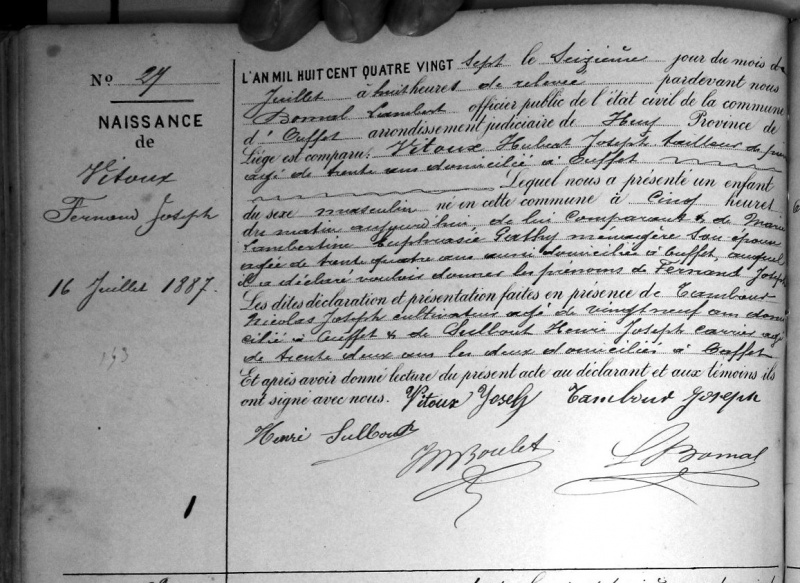 No 27
NAISSANCE
de
Vitoux
Fernand Joseph
16 Juillet 1887.
193
1
L'AN MIL HUIT CENT QUATRE VINGT sept le Seizième jour du mois de
Juillet à huit heures de relevée pardevant nous
Bomal Lambert officier public de l'état civil de la commune
d'Ouffet arrondissement judiciaire de Huy Province de
Liége est comparu: Vitoux Hubert Joseph tailleur de
agé de trente ans domicilié à Ouffet
Lequel nous a présenté un enfant
du sexe masculin né en cette commune à Cinq heures
du matin aujourd'hui de lui Comparant & de Marie
Lambertine Euphrasie Pathy ménagère Son épouse
agée de trente quatre ans aussi domiciliée à Ouffet, auquel
il a déclaré vouloir donner les prénoms de Fernand Joseph
Les dites déclaration et présentation faites en présence de Tambour
Nicolas Joseph cultivateur agé de vingt neuf ans domi
cilié à Ouffet & de Sulbout Henri Joseph carrier agé
de trente deux ans les deux domiciliés à Ouffet
Et après avoir donné lecture du présent acte au déclarant et aux témoins ils
ont signé avec nous. Vitoux Joseph Tambour Joseph
Henri Sulbout
Boulet L Bomal